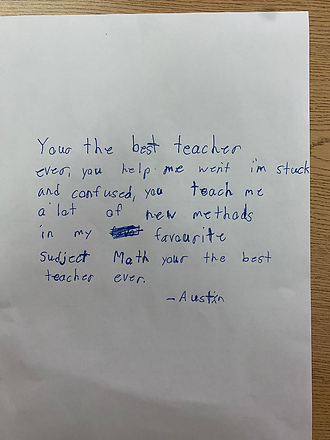 Your the best teacher
ever, you help me went i'm stuck
and confused, you teach me
a lot of new methods
in my favourite
Subject Math your the best
teacher ever.
-Austin